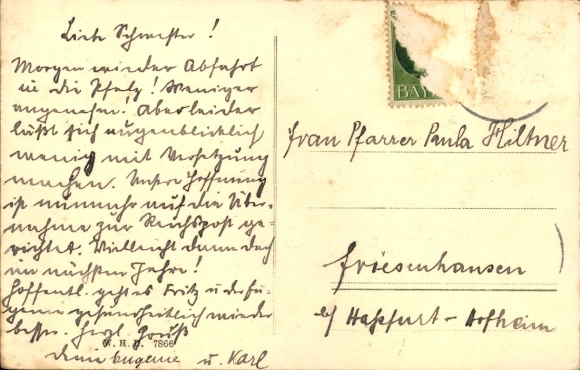 Liebe Schwester!
Morgen wieder Abfahrt
in die Pfalz! Weniger
angenehm! Aber leider
läßt sich augenblicklich
wenig mit Versetzung
machen. Unsere Hoffnung
ist nunmehr auf die Über-
nahme zur Reichspost ge-
richtet. Vielleicht dann doch
im nächsten Jahre!
Hoffentl. geht es Fritz u.
gesundheitlich wieder
besser. Herzl. Grüß
W. H. D. 7866
Deine Eugenie u. Karl
BAY
Frau Pfarrer Paula Hiltner
Friesenhausen
b/ Haßfurt - Hofheim